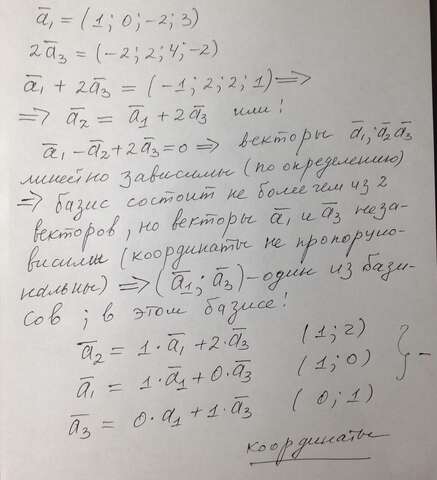 ā₁ = (1; 0; -2; 3)
2ā₃ = (-2; 2; 4; -2)
ā₁ + 2ā₃ = (-1; 2; 2; 1) ⇒
⇒ ā₂ = ā₁ + 2ā₃ или:
ā₁ - ā₂ + 2ā₃ = 0 ⇒ векторы ā₁; ā₂ ā₃
линейно зависимы (по определению)
⇒ базис состоит не более чем из 2
векторов, но векторы ā₁ и ā₃ неза-
висимы (координаты не пропорцио-
нальны) ⇒ (ā₁; ā₃) - один из бази-
сов; в этом базисе:
ā₂ = 1·ā₁ + 2·ā₃ (1; 2)
ā₁ = 1·ā₁ + 0·ā₃ (1; 0) } -
ā₃ = 0·a₁ + 1·ā₃ (0; 1)
координаты